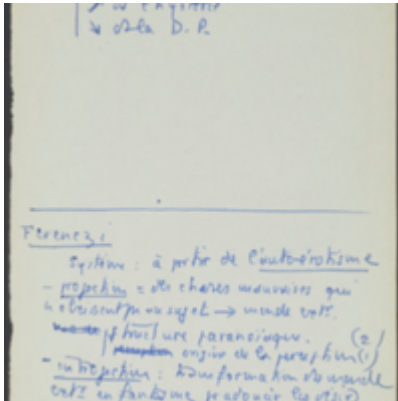 ↘ de la D.P.
Ferenczi
Système : à partir de l'autoérotisme
- projection = des choses mauvaises qui
n'obéissent pas au sujet → monde ext.
structure paranoïaque. (2)
origine de la perception (1)
- introjection : transformation du monde
ext. en fantasme